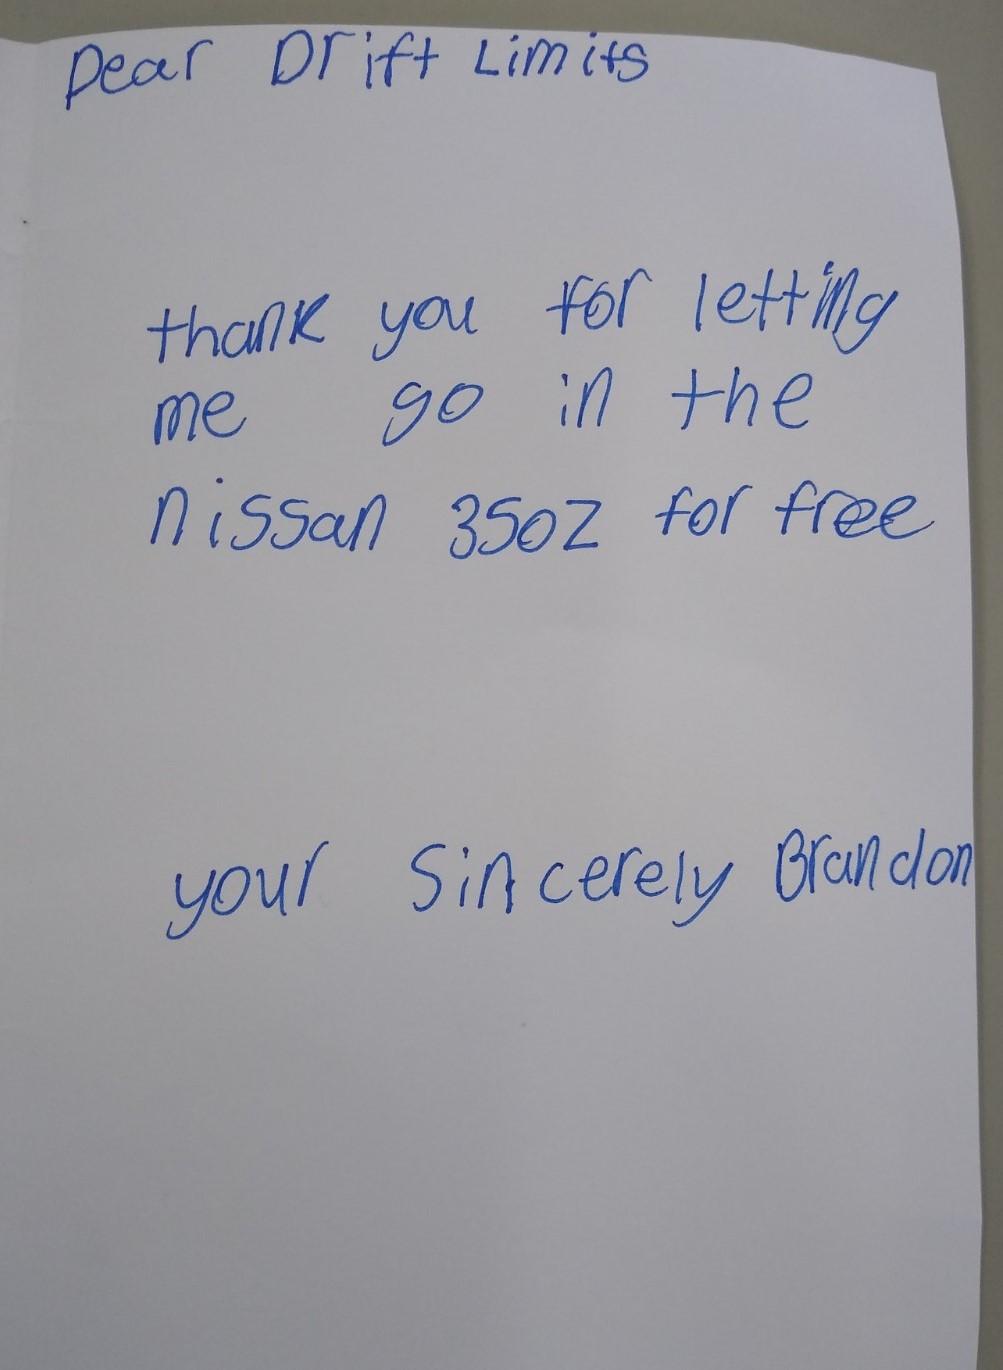 Dear Drift Limits
thank you for letting
me go in the
nissan 350Z for free
your Sincerely Brandon